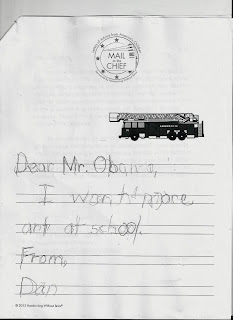 MAIL
to the
CHIEF
Dear Mr. Obama,
I want more
art at school.
From,
Dan
© 2012 Handwriting Without Tears®